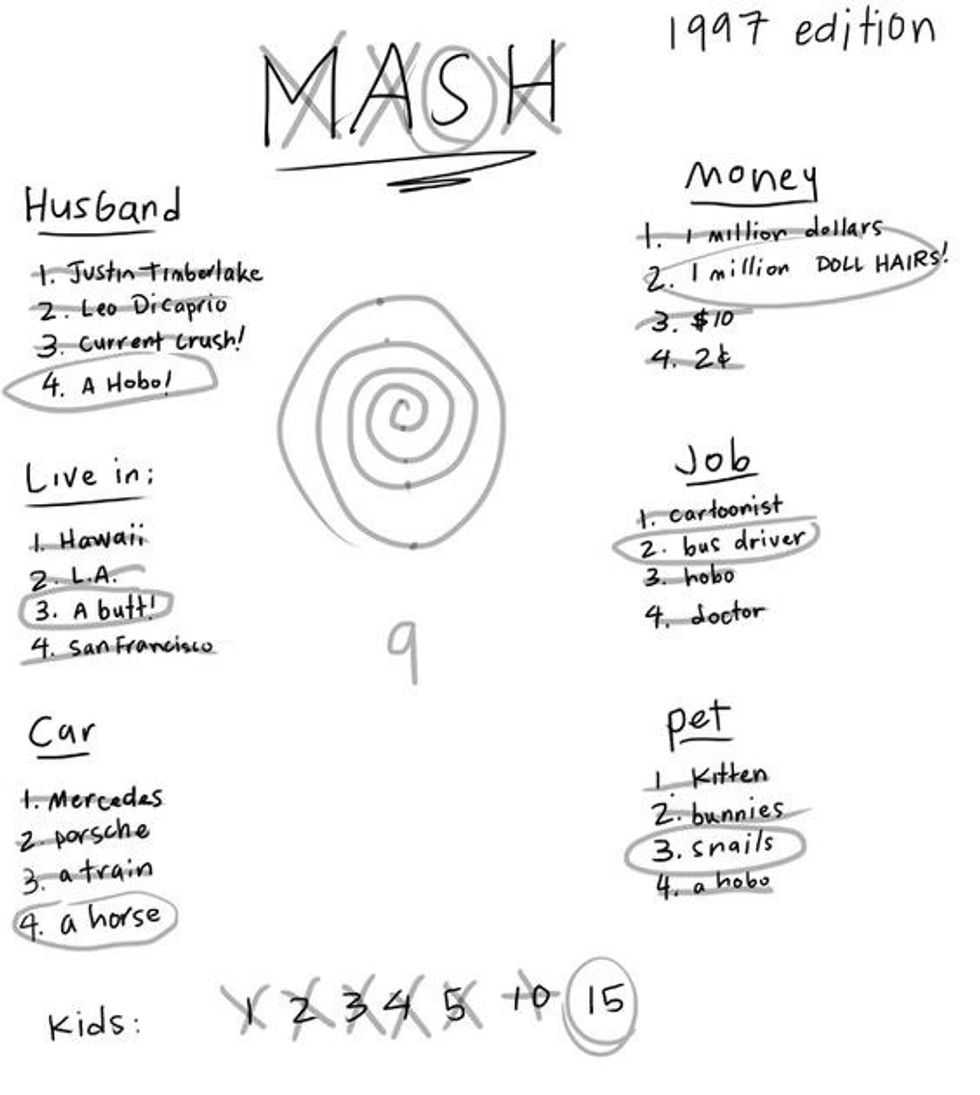 1997 edition
MASH
Husband
1. Justin Timberlake
2. Leo Dicaprio
3. Current crush!
4. A Hobo!
Live in:
1. Hawaii
2. L.A.
3. A butt!
4. San Francisco
Car
1. Mercedes
2. porsche
3. a train
4. a horse
Money
1. 1 million dollars
2. 1 million DOLL HAIRS!
3. $10
4. 2¢
Job
1. cartoonist
2. bus driver
3. hobo
4. doctor
pet
1. Kitten
2. bunnies
3. snails
4. a hobo
9
Kids: 1 2 3 4 5 10 15